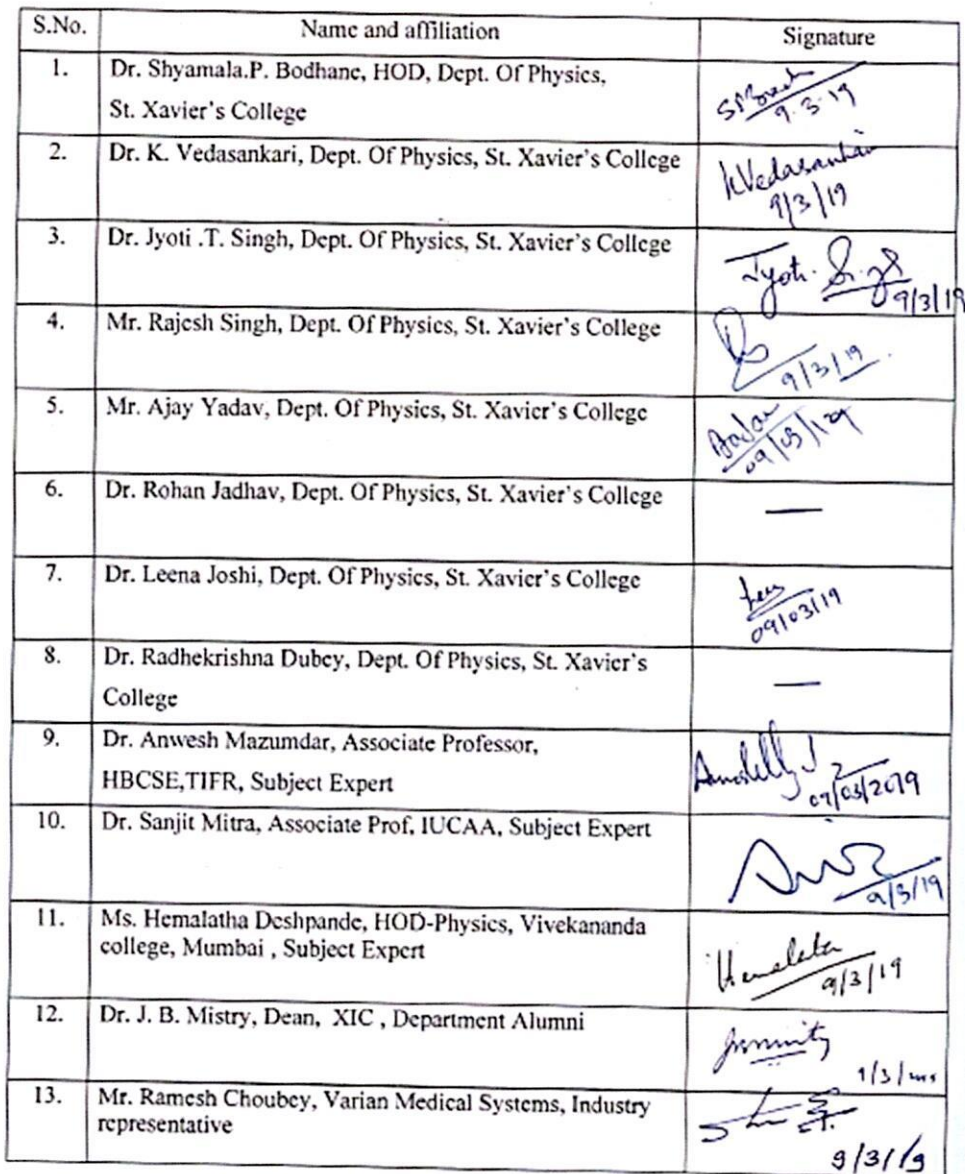 S.No. Name and affiliation Signature
1. Dr. Shyamala.P. Bodhane, HOD, Dept. Of Physics,
St. Xavier's College
9.3.19
2. Dr. K. Vedasankari, Dept. Of Physics, St. Xavier's College KVedasankari
9/3/19
3. Dr. Jyoti .T. Singh, Dept. Of Physics, St. Xavier's College
Jyoti. Singh
9/3/19
4. Mr. Rajesh Singh, Dept. Of Physics, St. Xavier's College
9/3/19
5. Mr. Ajay Yadav, Dept. Of Physics, St. Xavier's College
09/03/19
6. Dr. Rohan Jadhav, Dept. Of Physics, St. Xavier's College
—
7. Dr. Leena Joshi, Dept. Of Physics, St. Xavier's College
09/03/19
8. Dr. Radhekrishna Dubey, Dept. Of Physics, St. Xavier's
College
—
9. Dr. Anwesh Mazumdar, Associate Professor,
HBCSE,TIFR, Subject Expert
09/03/2019
10. Dr. Sanjit Mitra, Associate Prof, IUCAA, Subject Expert
9/3/19
11. Ms. Hemalatha Deshpande, HOD-Physics, Vivekananda
college, Mumbai , Subject Expert
Hemalata
9/3/19
12. Dr. J. B. Mistry, Dean, XIC , Department Alumni
13. Mr. Ramesh Choubey, Varian Medical Systems, Industry
representative
9/3/19